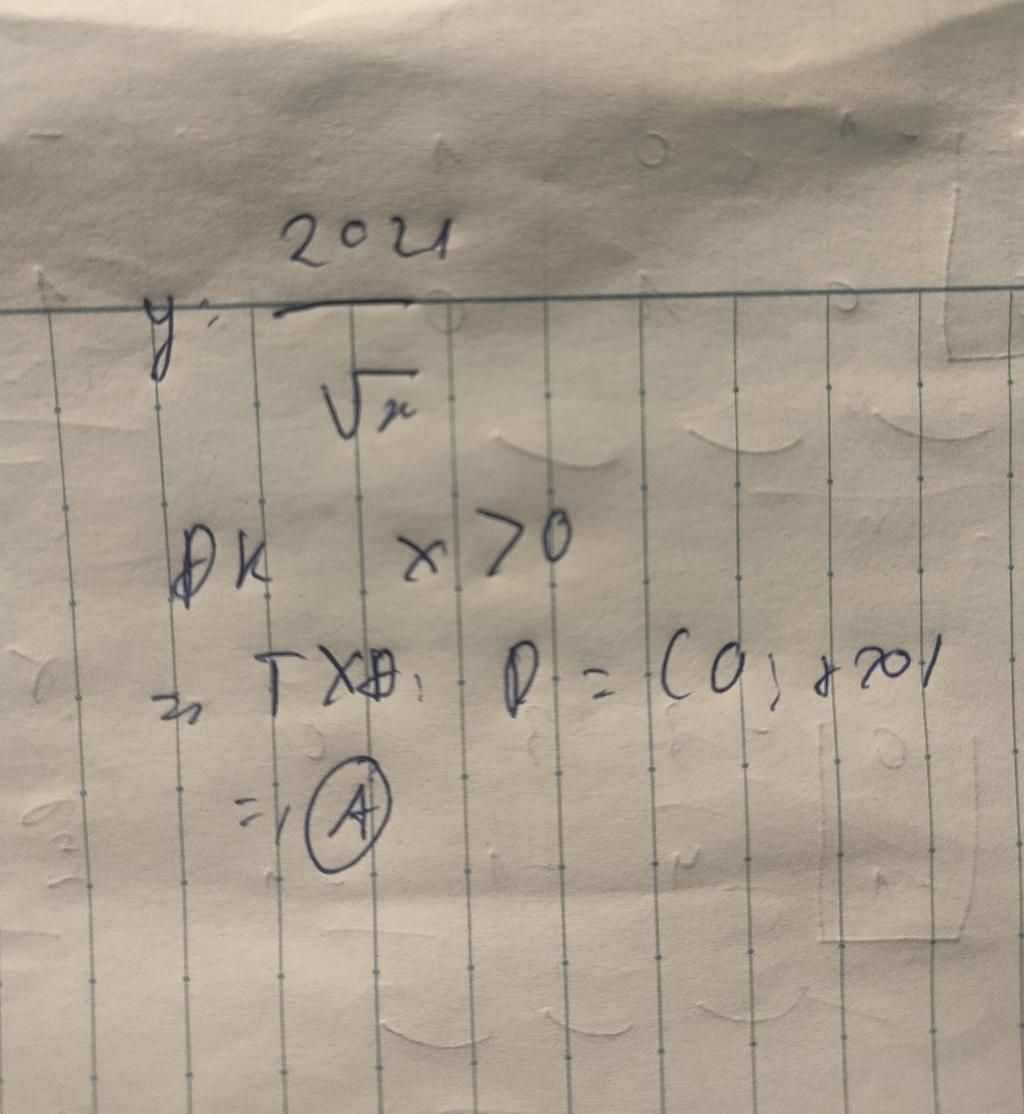 y = 2021/√x
ĐK x > 0
=> TXĐ: D = (0; +∞)
=> A